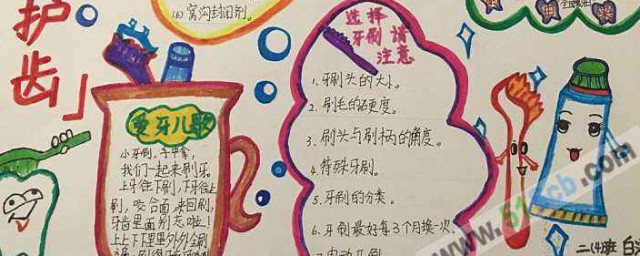 (6)窝沟封闭剂。
护
齿」
选择
牙刷请
注意
1、牙刷头的大小。
2、刷毛的硬度。
3、刷头与刷柄的角度。
4、特殊牙刷。
5、牙刷的分类。
6、牙刷最好每3个月换一次。
7、电动牙刷
爱牙儿歌
小牙刷,手中拿,
我们一起来刷牙。
上牙往下刷,下牙往上
刷,咬合面来回刷,
牙齿里面别忘啦!
上上下下里里外外全刷
二(4)班